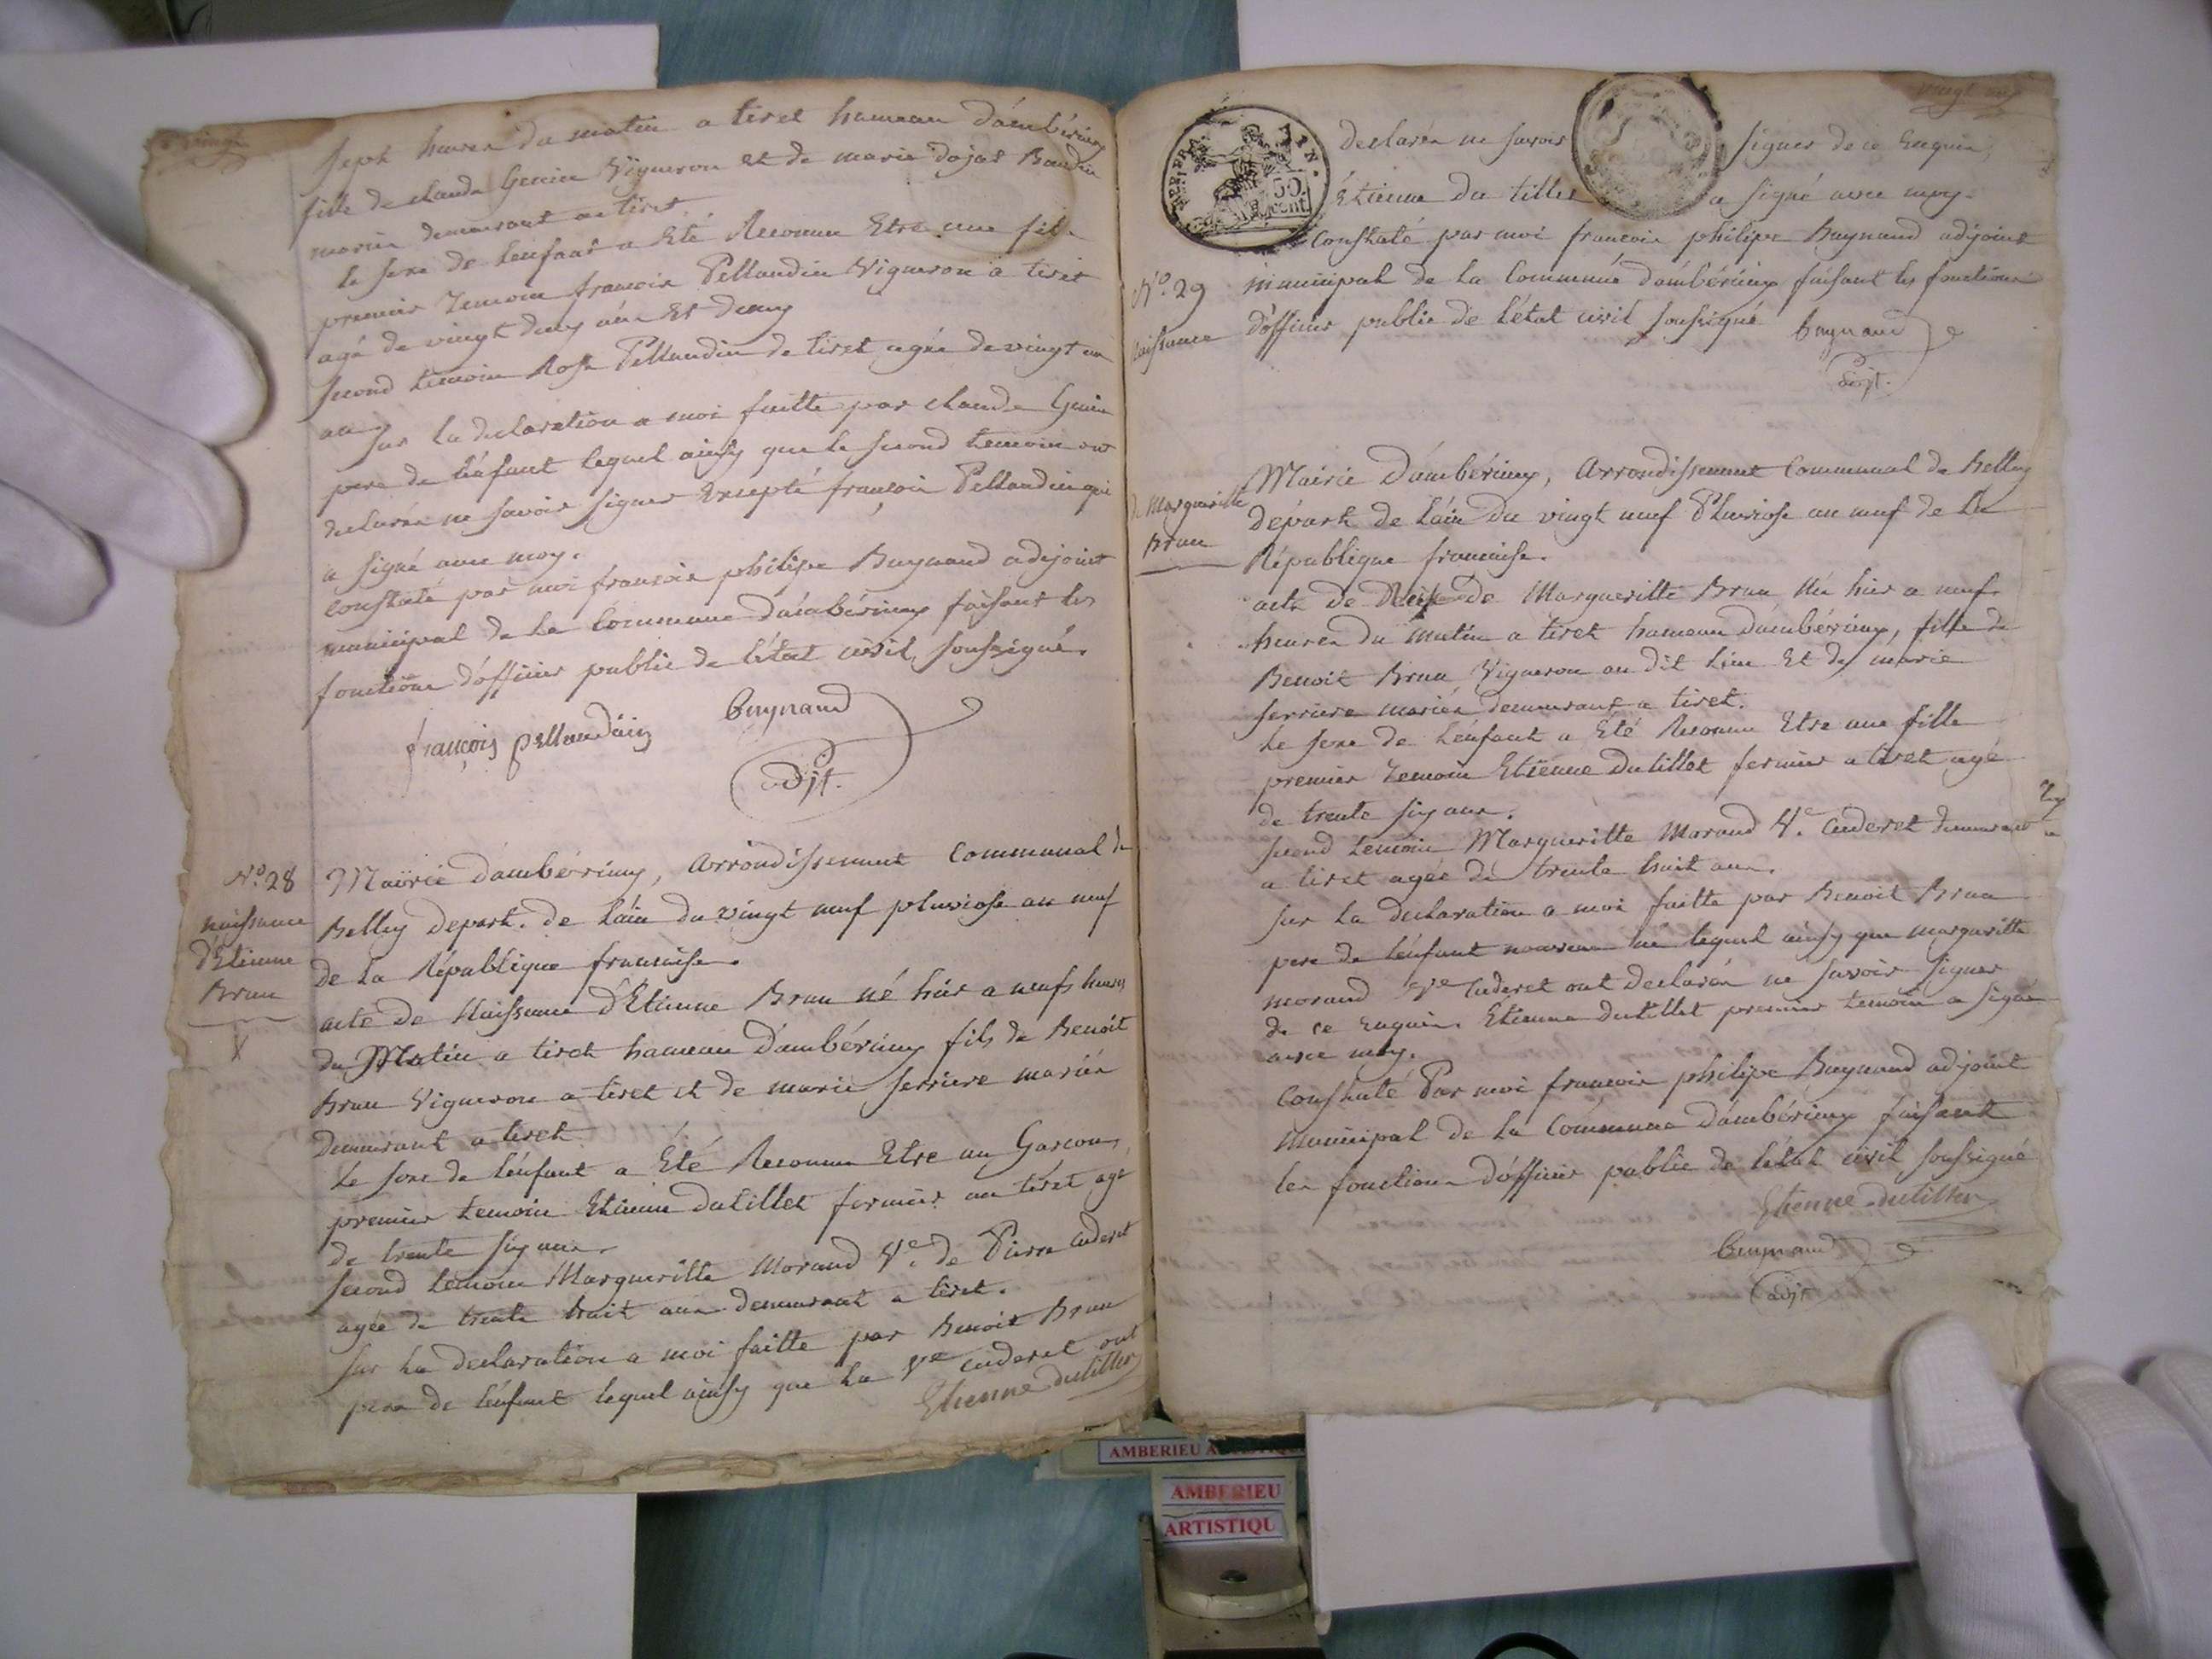 vingt
sept heures du matin a tiret hameau d'ambérieux
fille de claude Genin Vigneron et de marie dojat Baudin
mariés demeurant a tiret.
le sexe de l'enfant a Eté Reconnu Etre une fille
premier Temoin françois Pellaudin Vigneron a tiret
agé de vingt deux ans Et demy
second temoin Rose Pellaudin de tiret agée de vingt un
ans
sur la declaration a moi faitte par claude Genin
pere de l'enfant lequel ainsy que le second temoin ont
declarés ne savoir signer Excepté françois Pellaudin qui
a signé avec moy.
constaté par moi françois philipe Buynand adjoint
municipal de la Commune d'ambérieux faisant les
fonctions d'officier public de l'état civil soussigné.
françois pellaudain
buynand
adjt.
N.º 28
naissance
d'Etienne
Brun
Mairie d'ambérieux, arrondissement Communal de
Belley depart. de l'ain du vingt neuf pluviose an neuf
de la République francaise.
acte de Naissance d'Etienne Brun né hier a neufs heures
du Matin a tiret hameau d'ambérieux fils de Benoit
Brun Vigneron a tiret et de marie ferriere mariés
Demeurant a tiret.
le sexe de l'enfant a Eté Reconnu Etre un Garcon,
premier temoin Etienne dutillet fermier au tiret agé
de trente six ans.
second temoin Margueritte Morand Ve. de Pierre Cuderet
agée de trente huit ans demeurant a tiret.
sur la declaration a moi faitte par Benoit Brun
pere de l'enfant lequel ainsy que la Ve Cuderet ont
Etienne dutillet
vingt un
50
cent.
declarés ne savoir signer de ce Enquis
Etienne du tillet a signé avec moy.
Constaté par moi francois philipe Buynand adjoint
municipal de la Commune d'ambérieux faisant les fonctions
d'officier public de l'état civil soussigné
buynand
adjt.
N.º 29
naissance
de Margueritte
Brun
Mairie d'ambérieux, arrondissement Communal de Belley
départ. de l'ain du vingt neuf Pluviose an neuf de la
République francaise.
acte de de Margueritte Brun Née hier a neuf
heures du matin a tiret hameau d'ambérieux, fille de
Benoit Brun Vigneron au dit lieu Et de marie
ferriere mariés demeurant a tiret.
Le sexe de l'enfant a Eté Reconnu Etre une fille
premier Temoin Etienne Dutillet fermier a tiret agé
de trente six ans.
second temoin Margueritte Morand Ve. Cuderet demeurant
a tiret agée de trente huit ans.
sur la declaration a moi faitte par Benoit Brun
pere de l'enfant nouveau né lequel ainsy que margueritte
morand Ve Cuderet ont declarés ne savoir signer
de ce enquis. Etienne dutillet premier temoin a signé
avec moy.
constaté Par moi francois philipe Buynand adjoint
Municipal de la Commune d'ambérieux faisant
les fonctions d'officier public de l'état civil soussigné
Etienne dutillet
buynand
adjt
AMBERIEU
AMBERIEU
ARTISTIQU